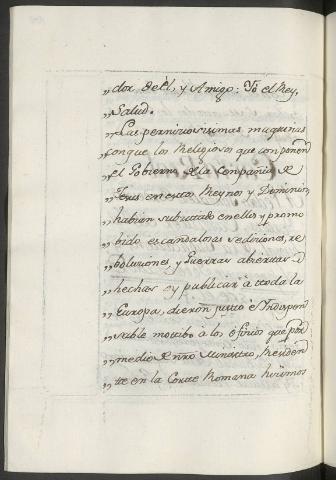 „dor, de él, y Amigo: Yo el Rey,
„Salud.
„Las perniciosissimas maquinas
„conque los Religiosos que componen
„el Gobierno de la Compañia de
„Jesus en estos Reynos y Dominios
„habian subsitado en ellos y promo
„bido escandalosas sediciones, re
„boluciones, y Guerras abiertas
„hechas oy publicar à toda la
„Europa, dieron justo è Indispen
„sable motibo à los oficios que por
„medio de nr̃o Ministro, Residen
„te en la Corte Romana hicimos